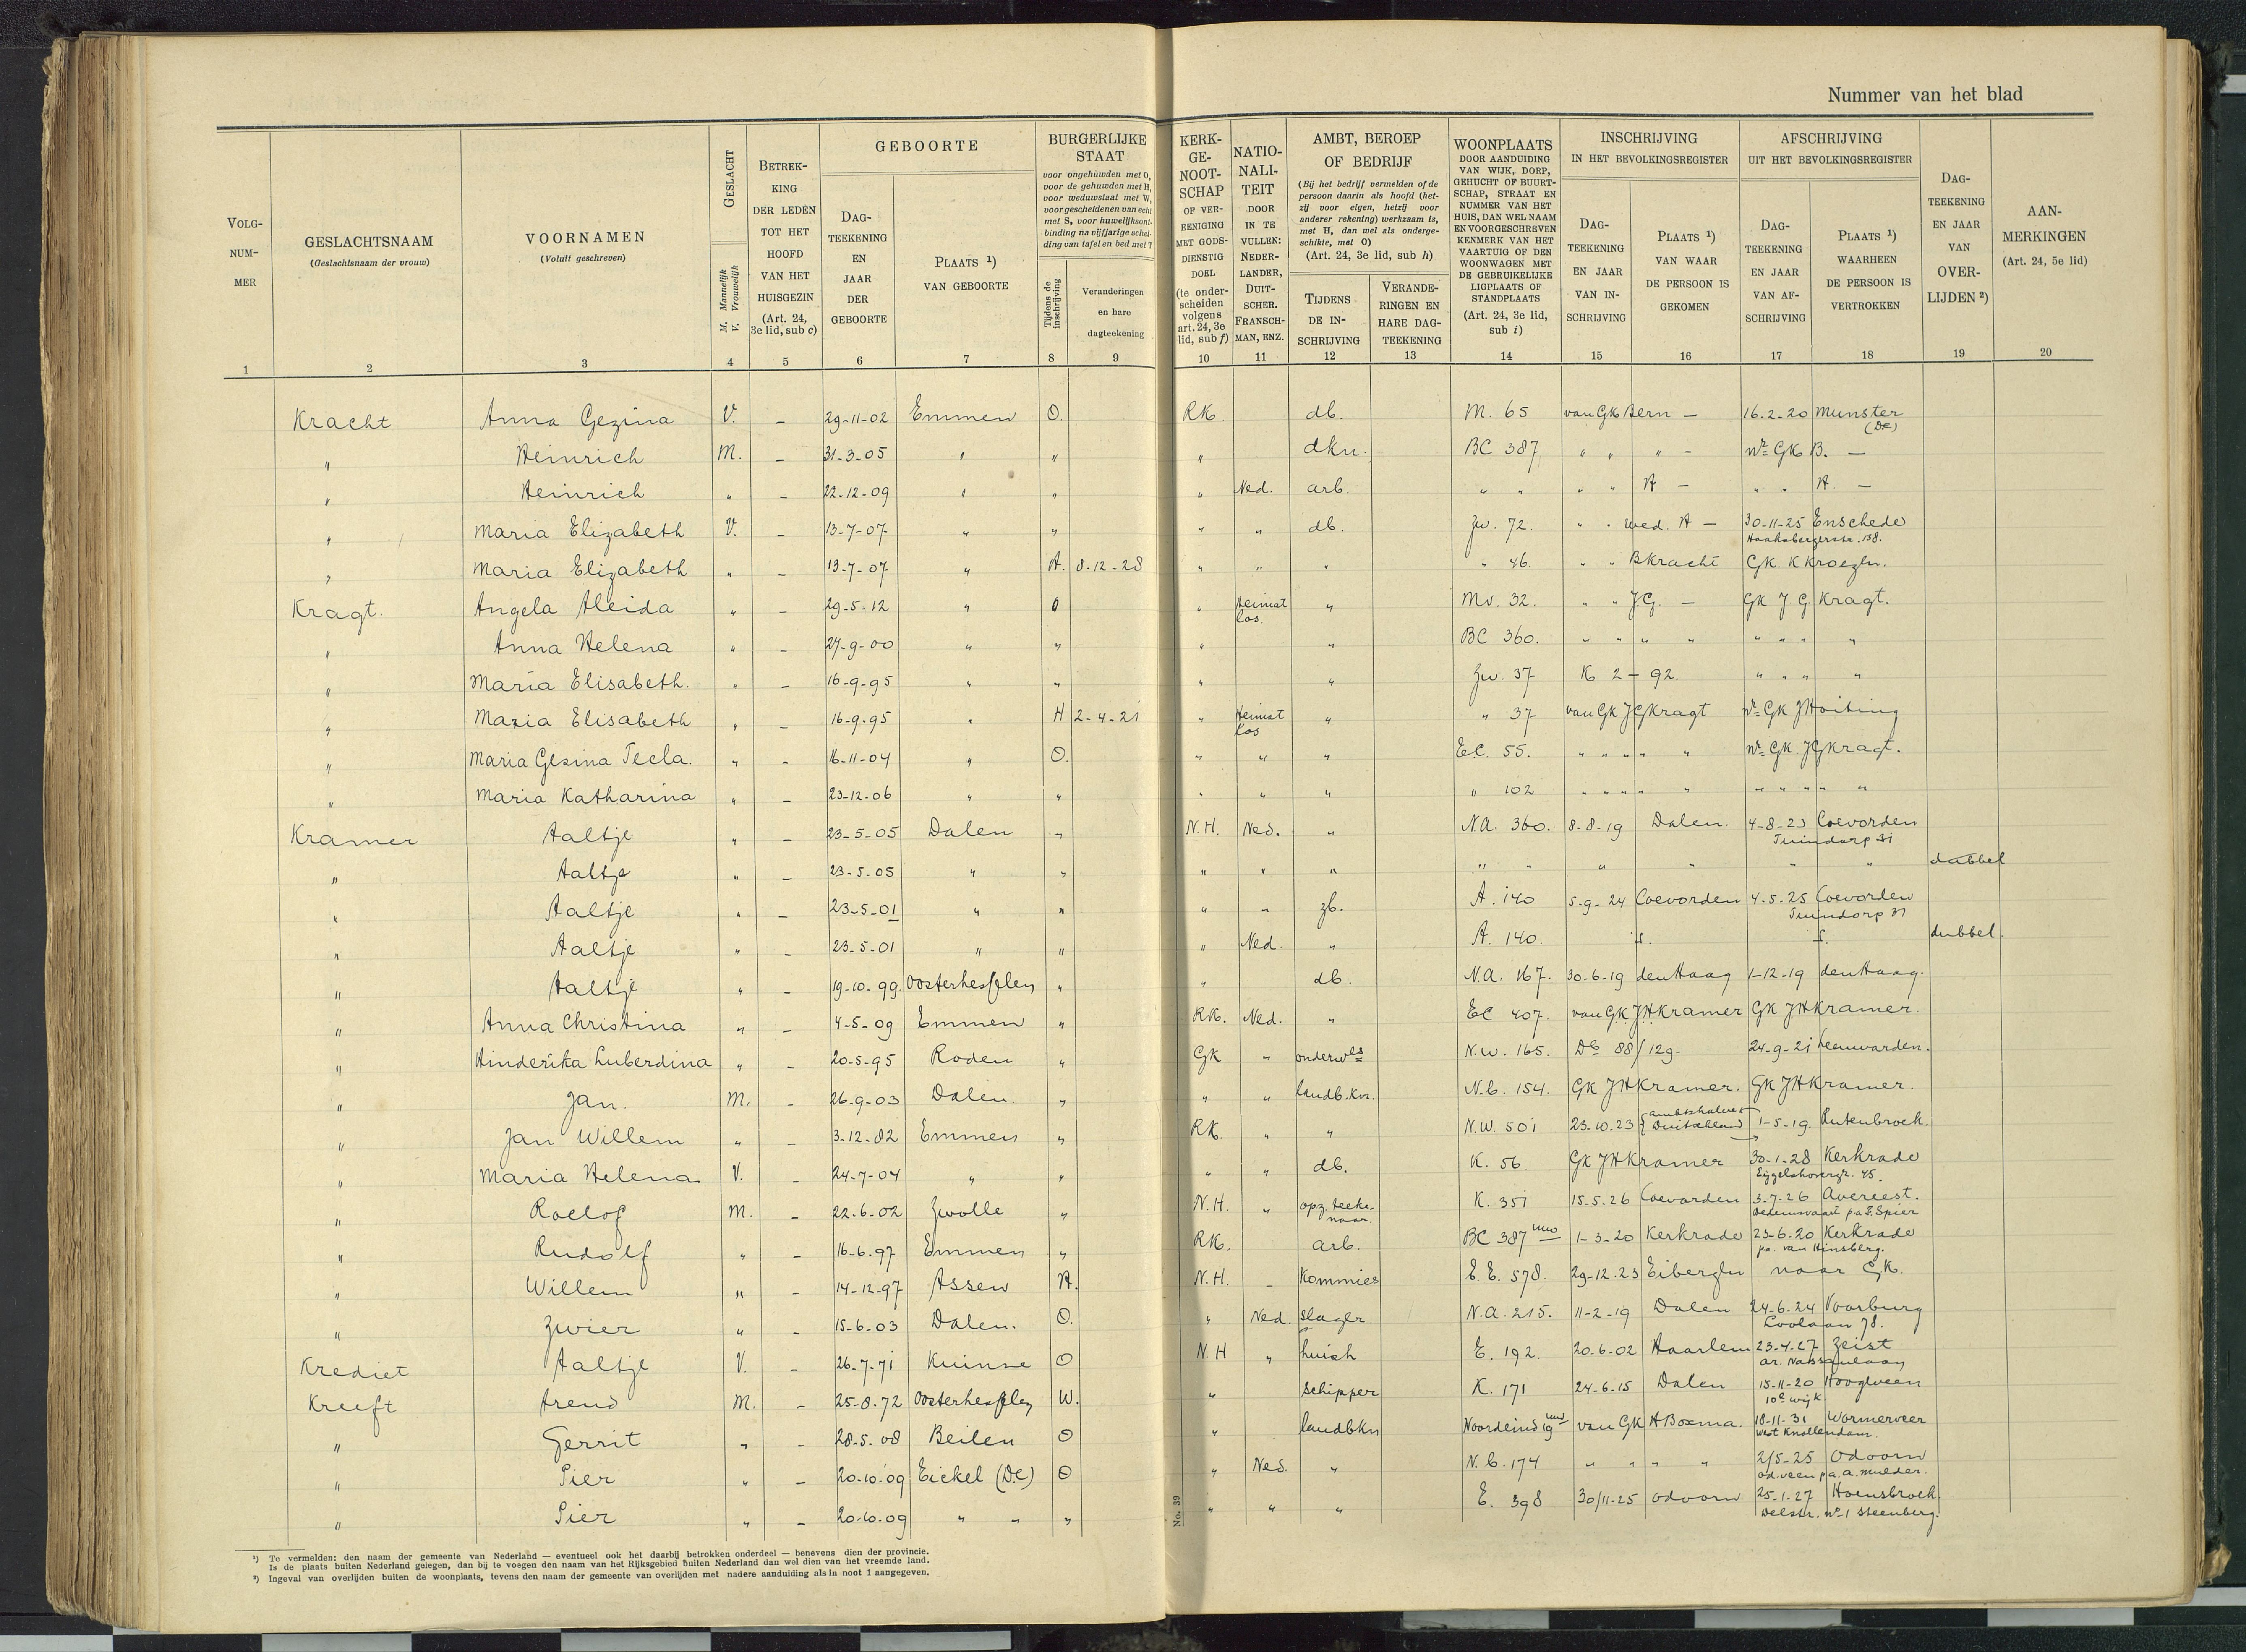 Nummer van het blad
VOLG-NUM-MER
GESLACHTSNAAM (Geslachtsnaam der vrouw)
VOORNAMEN (Voluit geschreven)
GESLACHT M. Mannelijk V. Vrouwelijk
BETREK-KING DER LEDEN TOT HET HOOFD VAN HET HUISGEZIN (Art. 24, 3e lid, sub c)
GEBOORTE
DAG-TEEKENING EN JAAR DER GEBOORTE
PLAATS ¹) VAN GEBOORTE
BURGERLIJKE STAAT
voor ongehuwden met O, voor de gehuwden met H, voor weduwstaat met W, voor gescheidenen van echt met S, voor huwelijksont-binding na vijfjarige schei-ding van tafel en bed met T
Tijdens de inschrijving
Veranderingen en hare dagteekening
KERK-GE-NOOT-SCHAP OF VER-EENIGING MET GODS-DIENSTIG DOEL (te onder-scheiden volgens art. 24, 3e lid, sub f)
NATIO-NALI-TEIT DOOR IN TE VULLEN: NEDER-LANDER, DUIT-SCHER. FRANSCH-MAN, ENZ.
AMBT, BEROEP OF BEDRIJF
(Bij het bedrijf vermelden of de persoon daarin als hoofd (het-zij voor eigen, hetzij voor anderer rekening) werkzaam is, met H, dan wel als onderge-schikte, met O) (Art. 24, 3e lid, sub h)
TIJDENS DE IN-SCHRIJVING
VERANDE-RINGEN EN HARE DAG-TEEKENING
WOONPLAATS DOOR AANDUIDING VAN WIJK, DORP, GEHUCHT OF BUURT-SCHAP, STRAAT EN NUMMER VAN HET HUIS, DAN WEL NAAM EN VOORGESCHREVEN KENMERK VAN HET VAARTUIG OF DEN WOONWAGEN MET DE GEBRUIKELIJKE LIGPLAATS OF STANDPLAATS (Art. 24, 3e lid, sub i)
INSCHRIJVING IN HET BEVOLKINGSREGISTER
DAG-TEEKENING EN JAAR VAN IN-SCHRIJVING
PLAATS ¹) VAN WAAR DE PERSOON IS GEKOMEN
AFSCHRIJVING UIT HET BEVOLKINGSREGISTER
DAG-TEEKENING EN JAAR VAN AF-SCHRIJVING
PLAATS ¹) WAARHEEN DE PERSOON IS VERTROKKEN
DAG-TEEKENING EN JAAR VAN OVER-LIJDEN ²)
AAN-MERKINGEN (Art. 24, 5e lid)
1 2 3 4 5 6 7 8 9 10 11 12 13 14 15 16 17 18 19 20
Kracht Anna Gezina V. - 29-11-02 Emmen O. RK. db. M. 65 van GK Bern - 16-2-20 Munster (De)
" Heinrich M. - 31-3-05 " " " dkn. BC 387 " " " - nr GK B. -
" Heinrich " - 22-12-09 " " " Ned. arb. " " " " H - " " H. -
" Maria Elizabeth V. - 13-7-07 " " " " db. Zw. 72. " " wed. H - 30-11-25 Enschede
Haaksbergerstr. 138.
" Maria Elizabeth " - 13-7-07 " H. 8-12-28 " " " " 46. " " B Kracht GK. K Kroezen.
Kragt. Angela Aleida " - 29-5-12 " O " Heimatlos. " Mv. 32. " " J.G. - GK J G Kragt.
" Anna Helena " - 27-9-00 " " " " BC 360. " " " " " " " "
" Maria Elisabeth. " - 16-9-95 " " " " Zw. 37 K 2 - 92. " " " "
" Maria Elisabeth " - 16-9-95 " H 2-4-21 " Heimatlos " " 37 van GK JG Kragt nr GK J Hoiting
" Maria Gesina Tecla. " - 16-11-04 " O. " " " E.C. 55. " " " " " nr GK. JG Kragt.
" Maria Katharina " - 23-12-06 " " " " " " 102 " " " " " " " " " "
Kramer Aaltje " - 23-5-05 Dalen " N.H. Ned. " N.A. 360. 8-8-19 Dalen. 4-8-23 Coevorden
Tuindorp 31
" Aaltje " - 23-5-05 " " " " " " " " " " " dubbel
" Aaltje " - 23-5-01 " " " " zb. A. 140 5-9-24 Coevorden 4-5-25 Coevorden
Tuindorp 31
" Aaltje " - 23-5-01 " " " Ned. " A. 140. dubbel.
" Aaltje " - 19-10-99. Oosterhesselen " " db. N.A. 167. 30-6-19 den Haag 1-12-19 den Haag.
" Anna Christina " - 4-5-09 Emmen " RK. Ned. " EC 407. van GK JH Kramer GK JH Kramer.
" Hinderika Luberdina " - 20-5-95 Roden " GK " onderwes N.W. 165. De 88/129. 24-9-21 Leeuwarden.
" Jan. M. - 26-9-03 Dalen. " " " landb. kn. N.b. 154. GK JH Kramer. GK JH Kramer.
" Jan Willem " - 3-12-82 Emmen " RK. " " N.W. 501 23.10.23 ambtshalve Duitschland 1-5-19. Rutenbroek.
" Maria Helena V. - 24-7-04 " " " " db. K. 56. GK JH Kramer 30-1-28 Kerkrade
Eygelshovergr. 45.
" Roelof M. - 22-6-02 Zwolle " N.H. " opz. teekenaar. K. 351 15-5-26 Coevorden 3-7-26 Avereest.
Dedemsvaart pa F. Spier
" Rudolf " - 16-6-97 Emmen " RK. arb. BC 387 1-3-20 Kerkrade 23-6-20 Kerkrade
pa. van Hinsberg.
" Willem " - 14-12-97 Assen H. N.H. - Kommies E.E. 578. 29-12-23 Eibergen naar GK.
" Zwier " - 15-6-03 Dalen. O. " Ned. Slager N.A. 215. 11-2-19 Dalen 24-6-24 Voorburg
Loolaan 78.
Krediet Aaltje V. - 26-7-71 Kuinre O N.H " huish E. 192. 20-6-02 Haarlem 23-4-27 Zeist
ar. Nassaulaan
Kreeft Arend M. - 25-8-72 Oosterhesselen W. " Schipper K. 171 24-6-15 Dalen 15-11-20 Hoogeveen
10e wijk
" Gerrit " - 28-5-08 Beilen O " landbkn Noordeind 19 van GK H Boxma. 18-11-31 Wormerveer
West Knollendam.
" Pier " - 20-10-09 Eickel (De) O " Ned. " N.b. 174 " " " " 2/5-25 Odoorn
Od. veen pa. A. Mulder.
" Pier " - 20-10-09 " " " " " " E. 398 30/11-25 Odoorn 25-1-27 Hoensbroek
Delstr. no 1 Steenberg.
No. 39
¹) Te vermelden: den naam der gemeente van Nederland — eventueel ook het daarbij betrokken onderdeel — benevens dien der provincie.
Is de plaats buiten Nederland gelegen, dan bij te voegen den naam van het Rijksgebied buiten Nederland dan wel dien van het vreemde land.
²) Ingeval van overlijden buiten de woonplaats, tevens den naam der gemeente van overlijden met nadere aanduiding als in noot 1 aangegeven.